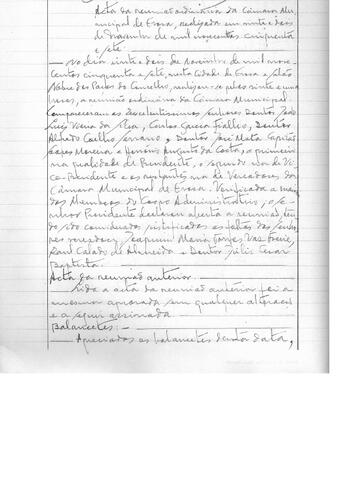 Acta da reunião ordinária da Câmara Mu-
nicipal de Evora, realizada em vinte e dois
de Novembro de mil novecentos cinquenta
e sete.
— No dia vinte e dois de Novembro de mil nove-
centos cinquenta e sete, nesta cidade de Evora e salão
Nobre dos Paços do Concelho, realizou-se pelas vinte e uma
horas, a reunião ordinária da Câmara Municipal.
Compareceram os excelentissimos senhores Doutor João
Luis Vieira da Silva, Carlos Garcia Fialho, Doutor
Alvaro Coelho Serrano, Doutor José Mata Capitão
Lopes Moreira e Antonio Augusto da Costa, o primeiro
na qualidade de Presidente, o segundo na de Vi-
ce-Presidente e os restantes na de Vereadores da
Câmara Municipal de Evora. Verificada a maio-
dos Membros do Corpo Administrativo, o Se-
nhor Presidente declarou aberta a reunião, ten-
do sido consideradas justificadas as faltas dos senho-
res vereadores, Joaquim Maria Gomes Vaz Freire,
Raul Calado de Almeida e Doutor Júlio Cesar
Baptista.
Acta da reunião anterior.
— Lida a acta da reunião anterior foi a
mesma aprovada sem qualquer alteração
e a seguir assinada.
Balancetes: —
— Apreciados os balancetes desta data,